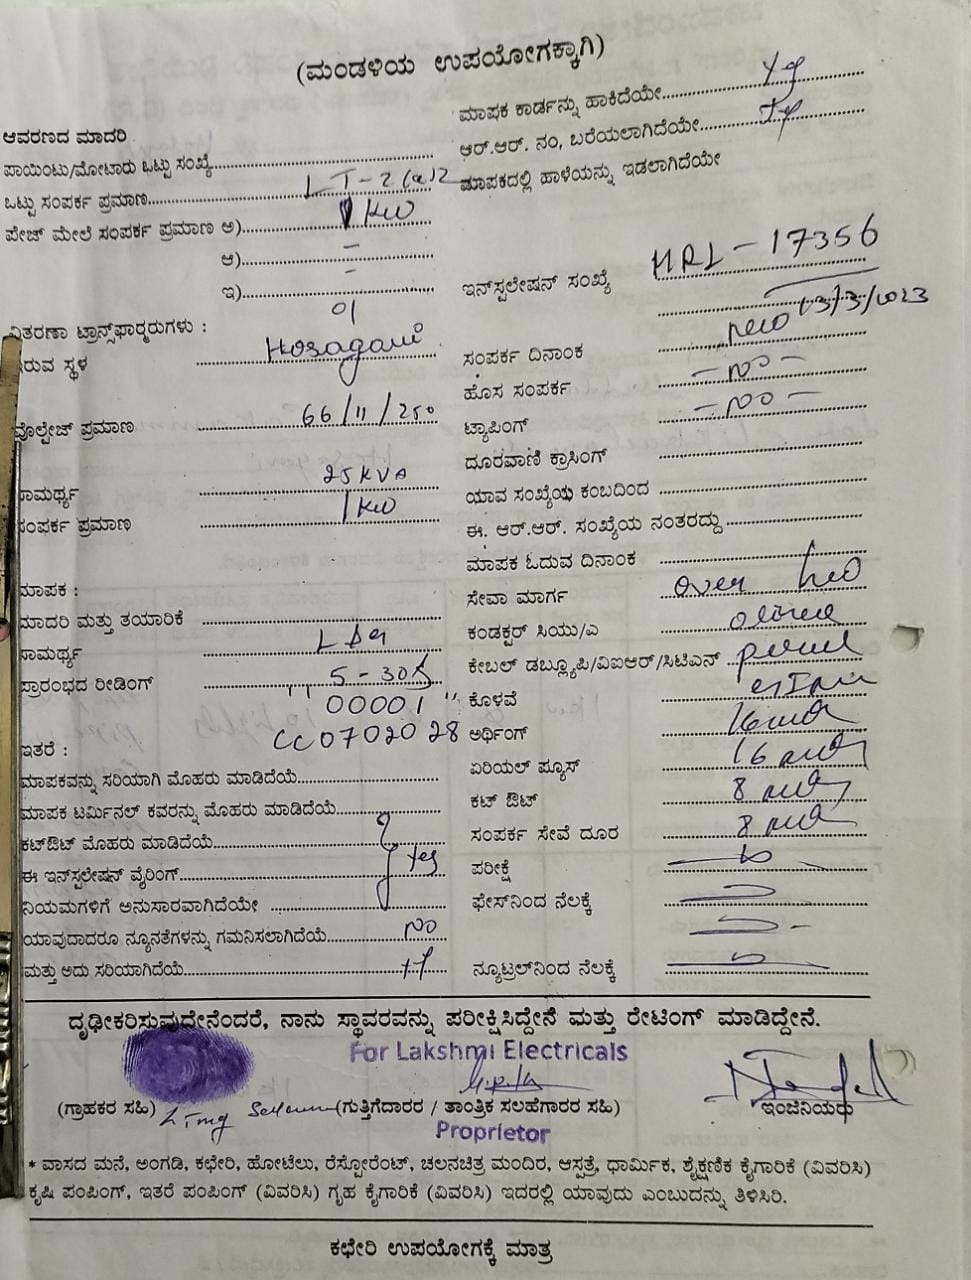 (ಮಂಡಳಿಯ ಉಪಯೋಗಕ್ಕಾಗಿ)
ಆವರಣದ ಮಾದರಿ
ಪಾಯಿಂಟು/ಮೋಟಾರು ಒಟ್ಟು ಸಂಖ್ಯೆ
ಒಟ್ಟು ಸಂಪರ್ಕ ಪ್ರಮಾಣ LT-2(a)2
ಪೇಜ್ ಮೇಲೆ ಸಂಪರ್ಕ ಪ್ರಮಾಣ ಅ) 1 KW
ಆ) –
ಇ) –
01
ವಿತರಣಾ ಟ್ರಾನ್ಸ್‌ಫಾರ್ಮರುಗಳು :
ಇರುವ ಸ್ಥಳ Hosagavi
ವೊಲ್ಟೇಜ್ ಪ್ರಮಾಣ 66/11/250
ಸಾಮರ್ಥ್ಯ 25KVA
ಸಂಪರ್ಕ ಪ್ರಮಾಣ 1KW
ಮಾಪಕ :
ಮಾದರಿ ಮತ್ತು ತಯಾರಿಕೆ
ಸಾಮರ್ಥ್ಯ
ಪ್ರಾರಂಭದ ರೀಡಿಂಗ್ 5-30A
00001
CC0702028
ಇತರೆ :
ಮಾಪಕವನ್ನು ಸರಿಯಾಗಿ ಮೊಹರು ಮಾಡಿದೆಯೆ
ಮಾಪಕ ಟರ್ಮಿನಲ್ ಕವರನ್ನು ಮೊಹರು ಮಾಡಿದೆಯೆ
ಕಟ್‌ಔಟ್ ಮೊಹರು ಮಾಡಿದೆಯೆ
ಈ ಇನ್‌ಸ್ಟಲೇಷನ್ ವೈರಿಂಗ್ Yes
ನಿಯಮಗಳಿಗೆ ಅನುಸಾರವಾಗಿದೆಯೇ
ಯಾವುದಾದರೂ ನ್ಯೂನತೆಗಳನ್ನು ಗಮನಿಸಲಾಗಿದೆಯೆ NO
ಮತ್ತು ಅದು ಸರಿಯಾಗಿದೆಯೆ
ಮಾಪಕ ಕಾರ್ಡನ್ನು ಹಾಕಿದೆಯೇ
ಆರ್.ಆರ್. ನಂ, ಬರೆಯಲಾಗಿದೆಯೇ
ಮಾಪಕದಲ್ಲಿ ಹಾಳೆಯನ್ನು ಇಡಲಾಗಿದೆಯೇ
ಇನ್‌ಸ್ಟಲೇಷನ್ ಸಂಖ್ಯೆ HRL-17356
03/3/2023
ಸಂಪರ್ಕ ದಿನಾಂಕ new
ಹೊಸ ಸಂಪರ್ಕ – NO –
ಟ್ಯಾಪಿಂಗ್ – NO –
ದೂರವಾಣಿ ಕ್ರಾಸಿಂಗ್
ಯಾವ ಸಂಖ್ಯೆಯ ಕಂಬದಿಂದ
ಈ. ಆರ್.ಆರ್. ಸಂಖ್ಯೆಯ ನಂತರದ್ದು
ಮಾಪಕ ಓದುವ ದಿನಾಂಕ
ಸೇವಾ ಮಾರ್ಗ over
ಕಂಡಕ್ಟರ್ ಸಿಯು/ಎ
ಕೇಬಲ್ ಡಬ್ಲ್ಯೂಪಿ/ವಿಐಆರ್/ಸಿಟಿಎನ್
ಕೊಳವೆ
ಅರ್ಥಿಂಗ್
ಏರಿಯಲ್ ಫ್ಯೂಸ್
ಕಟ್ ಔಟ್
ಸಂಪರ್ಕ ಸೇವೆ ದೂರ
ಪರೀಕ್ಷೆ
ಫೇಸ್‌ನಿಂದ ನೆಲಕ್ಕೆ
ನ್ಯೂಟ್ರಲ್‌ನಿಂದ ನೆಲಕ್ಕೆ
ದೃಢೀಕರಿಸುವುದೇನೆಂದರೆ, ನಾನು ಸ್ಥಾವರವನ್ನು ಪರೀಕ್ಷಿಸಿದ್ದೇನೆ ಮತ್ತು ರೇಟಿಂಗ್ ಮಾಡಿದ್ದೇನೆ.
For Lakshmi Electricals
(ಗ್ರಾಹಕರ ಸಹಿ) (ಗುತ್ತಿಗೆದಾರರ / ತಾಂತ್ರಿಕ ಸಲಹೆಗಾರರ ಸಹಿ) ಇಂಜಿನಿಯರು
Proprietor
* ವಾಸದ ಮನೆ, ಅಂಗಡಿ, ಕಛೇರಿ, ಹೋಟೆಲು, ರೆಸ್ಟೋರೆಂಟ್, ಚಲನಚಿತ್ರ ಮಂದಿರ, ಆಸ್ಪತ್ರೆ, ಧಾರ್ಮಿಕ, ಶೈಕ್ಷಣಿಕ ಕೈಗಾರಿಕೆ (ವಿವರಿಸಿ)
ಕೃಷಿ ಪಂಪಿಂಗ್, ಇತರೆ ಪಂಪಿಂಗ್ (ವಿವರಿಸಿ) ಗೃಹ ಕೈಗಾರಿಕೆ (ವಿವರಿಸಿ) ಇದರಲ್ಲಿ ಯಾವುದು ಎಂಬುದನ್ನು ತಿಳಿಸಿರಿ.
ಕಛೇರಿ ಉಪಯೋಗಕ್ಕೆ ಮಾತ್ರ